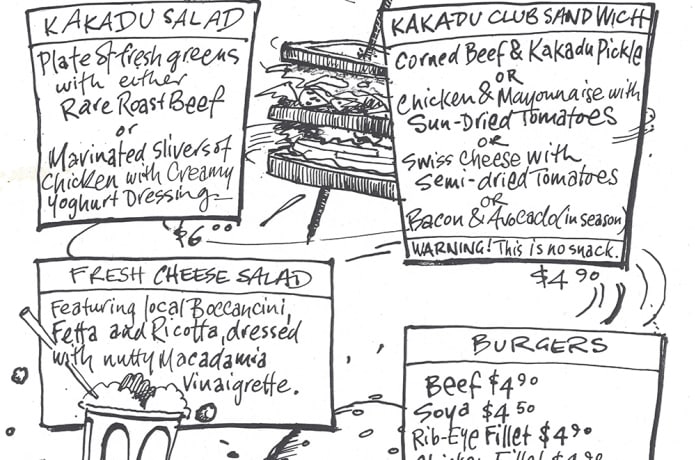 KAKADU SALAD
Plate of fresh greens
with either
Rare Roast Beef
or
Marinated slivers of
Chicken with Creamy
Yoghurt Dressing
$6.00
KAKADU CLUB SANDWICH
Corned Beef & Kakadu Pickle
OR
Chicken & Mayonnaise with
Sun-Dried Tomatoes
OR
Swiss cheese with
Semi-dried Tomatoes
OR
Bacon & Avocado (in season)
WARNING! This is no snack.
$4.90
FRESH CHEESE SALAD
Featuring local Boccancini,
Fetta and Ricotta, dressed
with nutty Macadamia
Vinaigrette.
BURGERS
Beef $4.90
Soya $4.50
Rib-Eye Fillet $4.90
Chicken Fillet $4.90